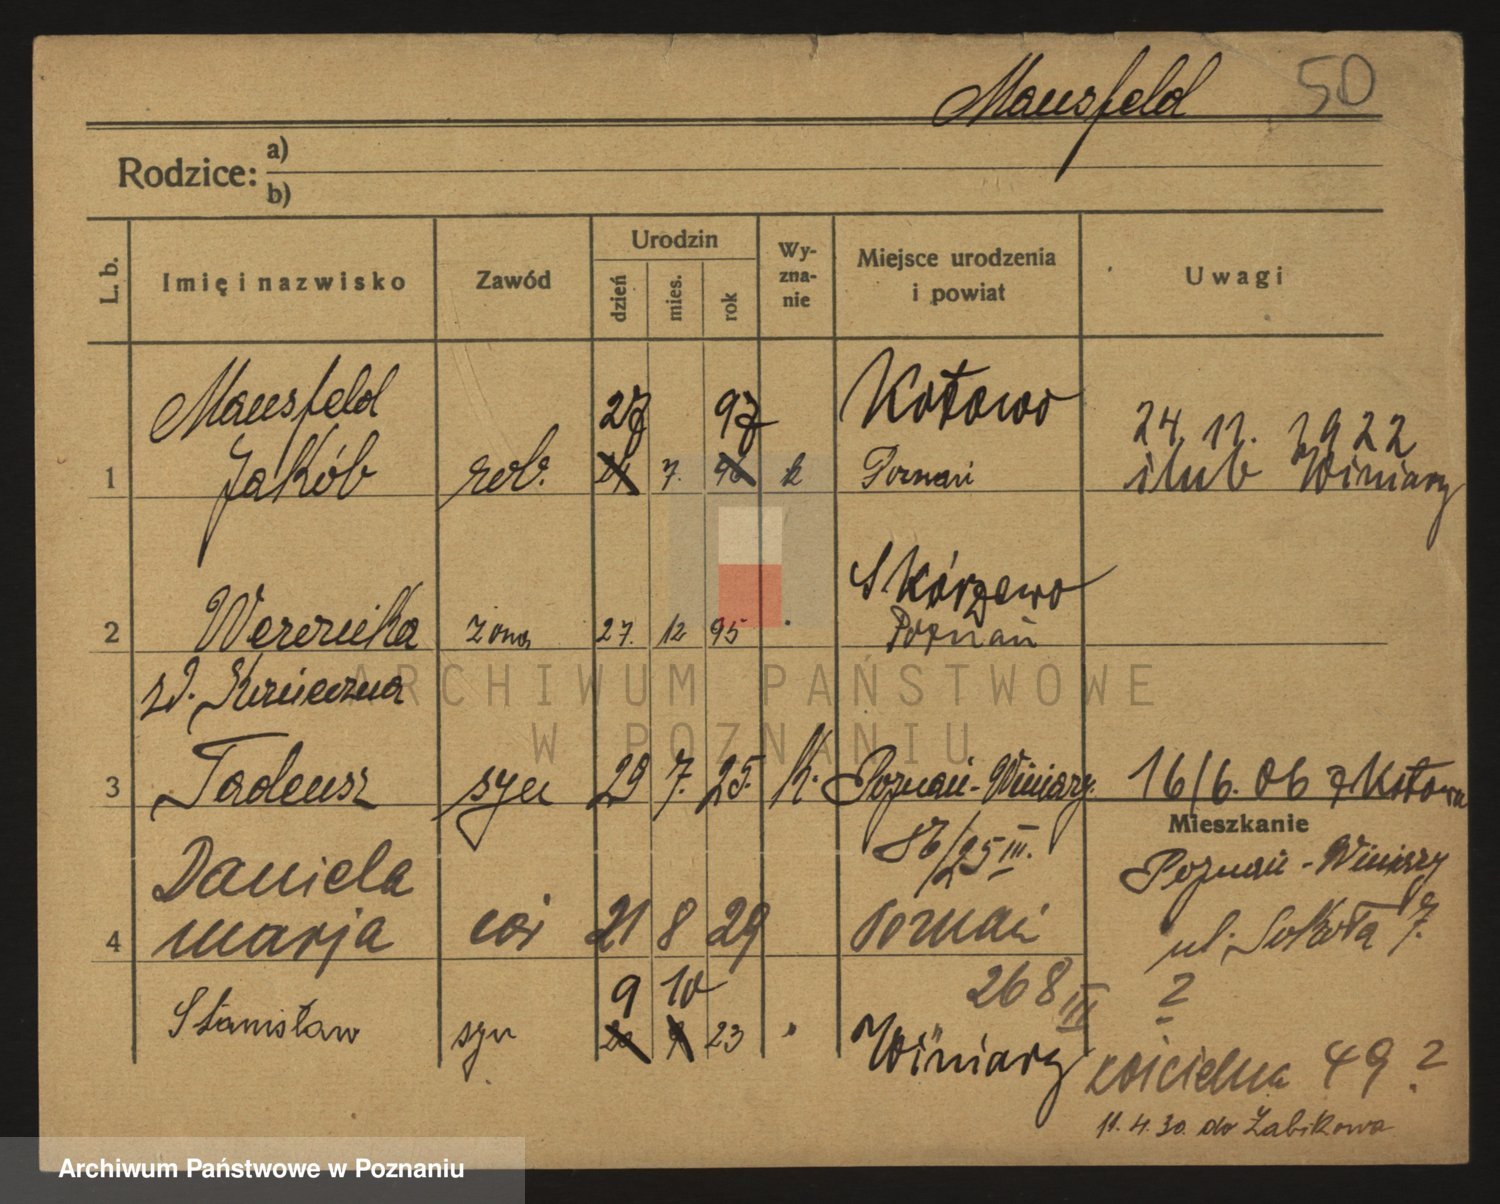 Mansfeld 50
Rodzice: a)
b)
L. b.
Imię i nazwisko
Zawód
Urodzin
dzień
mies.
rok
Wy-
zna-
nie
Miejsce urodzenia
i powiat
Uwagi
Mansfeld 27 97 Kotowo 24. 11. 1922
1 Jakób rob. 7. k Poznań ślub Winiary
Skórzewo
2 Weronika żona 27. 12 95 Poznań
zd. Konieczna
3 Tadeusz syn 29 7. 25. K. Poznań-Winiary. 16/6. 06 z Kotowa
/25 III.
Mieszkanie
Poznań-Winiary
Daniela
4 marja cór 21 8 29 Poznań ul. Sokoła 7.
9 10 268 III ?
Stanisław syn 23 Winiary
kościelna 49 ?
11. 4. 30. do Żabikowa
ARCHIWUM PAŃSTWOWE
W POZNANIU
Archiwum Państwowe w Poznaniu